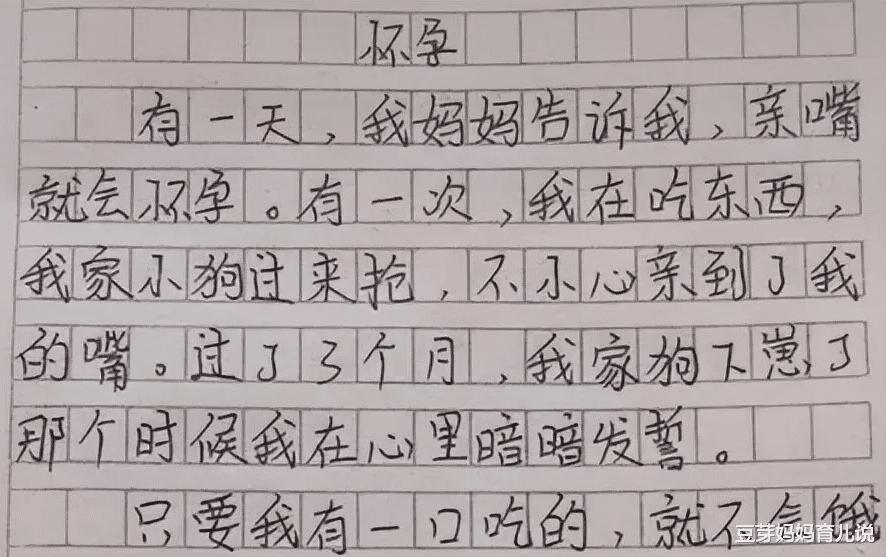 怀孕
有一天，我妈妈告诉我，亲嘴
就会怀孕。有一次，我在吃东西，
我家小狗过来抢，不小心亲到了我
的嘴。过了3个月，我家狗下崽了
那个时候我在心里暗暗发誓。
只要我有一口吃的，就不会饿
豆芽妈妈育儿说